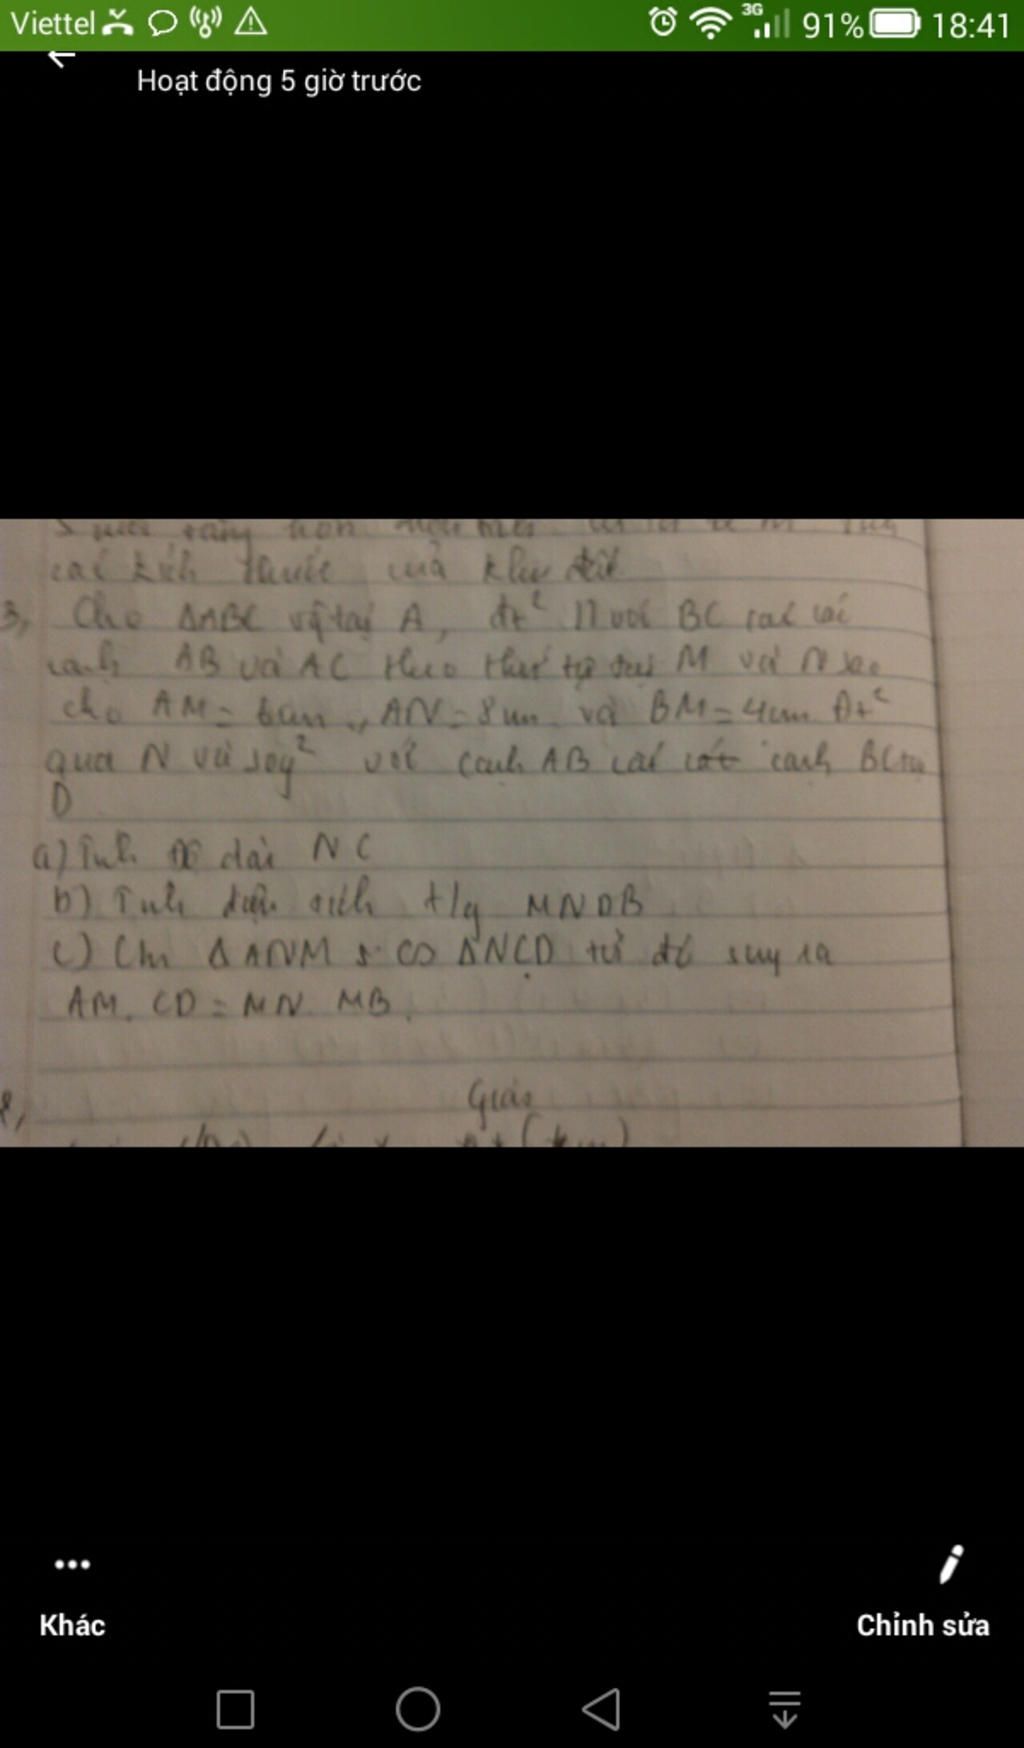 Viettel 3G 91% 18:41
Hoạt động 5 giờ trước
các kích thước của khu đất
3, Cho ΔABC vg tại A, đt² // với BC cắt các
cạnh AB và AC theo thứ tự tại M và N sao
cho AM = 6cm, AN = 8cm và BM = 4cm Đt²
qua N và soq² với cạnh AB cắt cắt cạnh BC tại
D
a) Tính độ dài NC
b) Tính diện tích t/g MNDB
c) Cm ΔANM ∽ ΔNCD từ đó suy ra
AM. CD = MN. MB.
Giải
Khác
Chỉnh sửa